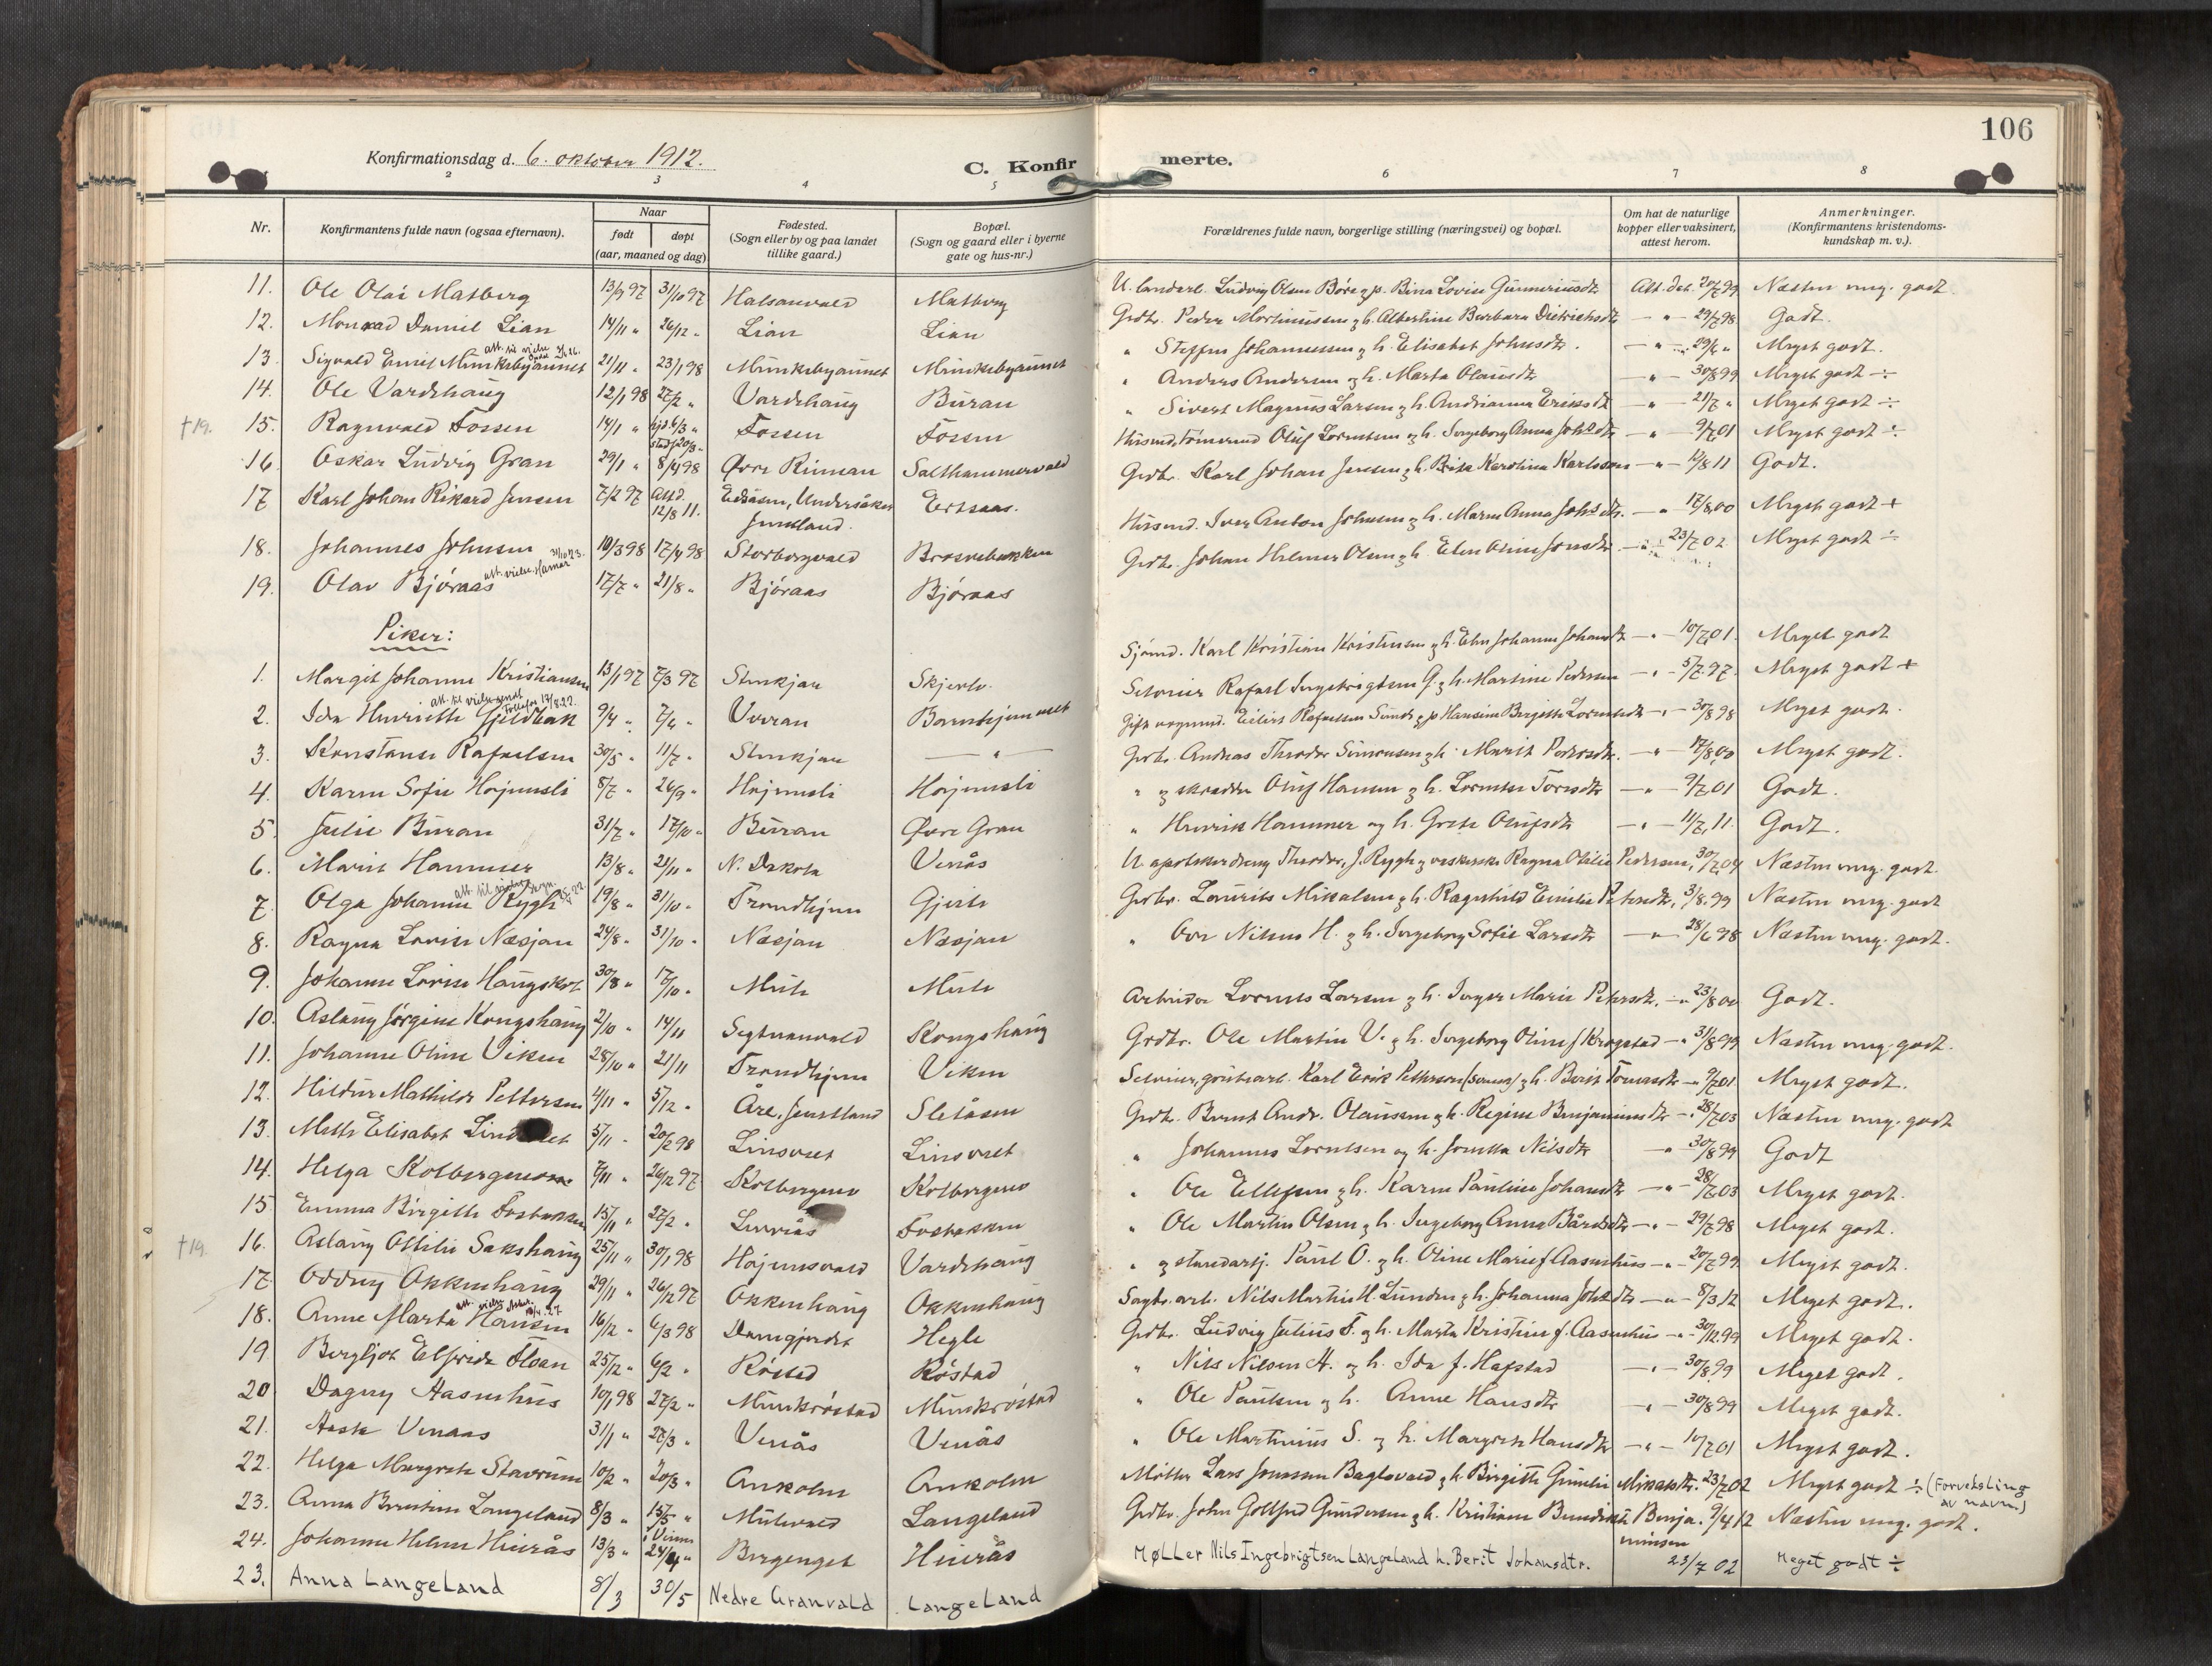 106
Konfirmationsdag d. 6. oktober 1912.
C. Konfir merte.
2 3 4 5 6 7 8
Nr. Konfirmantens fulde navn (ogsaa efternavn). Naar født døpt (aar, maaned og dag) Fødested. (Sogn eller by og paa landet tillike gaard.) Bopæl. (Sogn og gaard eller i byerne gate og hus-nr.) Forældrenes fulde navn, borgerlige stilling (næringsvei) og bopæl. Om hat de naturlige kopper eller vaksinert, attest herom. Anmerkninger. (Konfirmantens kristendoms-kundskap m. v.).
11. Ole Olai Matberg 13/9 97 31/10 97 Halsanvald Matberg U. landarb. Ludvig Olsen Børe g p. Bina Lovise Gunneriusdtr Att. dat. 20/7 99 Næsten meg. godt.
12. Monrad Daniel Lian 14/11 " 26/12 " Lian Lian Grdbr. Peder Martinussen g h. Albertine Barbara Dietrichsdtr — " — 29/7 98 Godt.
13. Sigvald Emil Munkebyaunet 21/11 " 23/1 98 Munkebyaunet Munkebyaunet " Steffen Johannessen g h. Elisabet Johnsdtr. — " — 29/6 " Meget godt.
14. Ole Vardehaug 12/1 98 27/2 " Vardehaug Buran " Anders Andersen g h. Marta Olausdtr — " — 30/8 99 Meget godt ÷
†19. 15. Ragnvald Fossen 14/1 " hjd. 6/3 " stadf 20/3 " Fossen Fossen " Sivert Magnus Larsen g h. Andrianna Eriksdtr — " — 21/7 " Meget godt ÷
16. Oskar Ludvig Gran 29/1 " 8/4 98 Øvre Rinnan Salthammervald Husmd. tømmermd Oluf Lorentsen og h. Ingeborg Anna Johsdtr — " — 9/7 01 Meget godt ÷
17 Karl Johan Rikard Jensen 7/2 97 Att d. 12/8 11. Edsåsen, Undersåker Jemtland. Ertsaas. Grdbr. Karl Johan Jensen g h. Brita Karolina Karlsson — " — 12/8 11 Godt.
18. Johannes Johnsen 10/3 98 17/4 98 Storborgvald Brosvebakken Husmd. Iver Anton Johnsen g h. Maren Anna Johsdtr. — " 17/8 00 Meget godt +
19. Olav Bjøraas att. vielse Hamar 31/10 23. 17/7 " 21/8 " Bjøraas Bjøraas Grdbr. Johan Helmer Olsen g h. Elen Oline Jonsdtr — " 23/7 02 Meget godt ÷
Piker:
1. Margit Johanne Kristiansen 13/1 97 7/3 97 Stenkjær Skjerve Sjømd. Karl Kristian Kristensen g h. Elen Johanna Johansdtr — " — 10/7 01. Meget godt
2. Ida Henriette Gjeldbak 9/4 " 7/6 " Vorran Barnehjemmet Seterier Rafael Ingebrigtsen G. g h. Martine Pedersen — " — 5/7 97. Meget godt +
3. Konstanse Rafaelsen 30/5 " 11/7 " Stenkjær — " — Gift ungmd. Eilert Rafaelsen Sund g p Hansine Birgitte Lorentsdtr — " — 30/8 98 Meget godt.
4. Karen Sofie Højemsli 8/7 " 26/9 " Højemsli Højemsli Grdbr. Andreas Theodor Simonsen g h. Marit Pedersdtr. — " — 17/8 00 Meget godt.
5. Julie Buran 31/7 " 17/10 " Buran Øvre Gran " g skredder Oluf Hansen g h. Lorentse Toresdtr — " — 9/7 01 Godt.
6. Marit Hammer 13/8 " 21/11 " N. Dakota Venås " Henrik Hammer og h. Grete Olufsdtr — " — 11/7 11. Godt.
7. Olga Johanne Rygh 19/8 " 31/10 " Trondhjem Gjerde U apotekerdreng Theodor J. Rygh g vaskerske Ragna Otilie Pedersen, 30/7 04 Næsten meg. godt.
8. Ragna Lovise Næsjan 24/8 " 31/10 " Næsjan Næsjan Grdbr. Lauritz Mikalsen g h. Ragnhild Emilie Petersdtr, 3/8 99 Næsten meg. godt
9. Johanne Lovise Haugskot 30/8 " 17/10 " Mule Mule " Ove Nilsen H. g h. Ingeborg Sofie Larsdtr — " — 28/6 98 Næsten meg. godt.
10. Aslaug Jørgine Kongshaug 2/10 " 14/11 Segtnanvald Kongshaug Arbeider Lorents Larsen g h. Inger Marie Petersdtr. — " 23/8 00 Godt.
11. Johanne Oline Viken 28/10 " 21/11 Trondhjem Viken Grdbr. Ole Martin V. g h. Ingeborg Oline f Krogstad — " 31/8 99 Næsten meg. godt.
12. Hildur Mathilde Pettersen 4/11 " 5/12 " Åre, Jemtland Sletåsen Seterier, grubearb. Karl Erik Petterson (Svensk) g h. Berit Toresdtr — " 9/7 01. Meget godt.
13. Mette Elisabet Lins et 5/11 " 20/2 98 Linsvet Linsvet Grdbr. Bernt Andr. Olaussen g h. Regine Benjaminsdtr — " 28/7 03 Næsten meg. godt
14. Helga Kolbergmo 7/11 " 26/12 97 Kolbergmo Kolbergmo " Johannes Lorentsen og h. Jonetta Nilsdtr — " 30/8 99 Godt
15. Emma Birgitte Fosbakken 15/11 " 27/2 " Fosbakken " Ole Ellefsen g h. Karen Pauline Johansdtr — " — 28/7 03 Meget godt.
†19. 16. Aslaug Otilie Sakshaug 25/11 " 30/1 98 Højemsvald Vardehaug " Ole Martin Olsen g h. Ingeborg Anna Bårdsdtr — " — 29/7 98 Meget godt.
17. Oddny Okkenhaug 29/11 " 26/12 97 Okkenhaug Okkenhaug " g standartj. Paul O. g h. Oline Marie f Aasenhus — " — 20/7 99 Meget godt.
18. Anne Marta Hansen 16/12 " 6/3 98 Damgjerdet Hegle Sagbr. arb. Nils Martin H. Lunden g h. Johanna Johsdtr — " — 8/3 12 Meget godt.
19 Bergljot Elfride Floan 25/12 " 6/2 " Røstad Røstad Grdbr. Ludvig Julius F. g h. Marta Kristine f. Aasenhus — " — 30/12 99 Meget godt.
20 Dagny Aasenhus 10/1 98 27/2 " Munkrøstad Munkrøstad " Nils Nilsen A. og h. Ida f. Hafstad — " — 30/8 99 Meget godt.
21. Aasta Venaas 31/1 " 27/3 " Venås Venås " Ole Paulsen g h. Anne Hansdtr — " — 30/8 99 Meget godt.
22. Helga Margrete Stavrum 10/2 " 20/3 " Ankolm Ankolm " Ole Martinius S. g h. Margrete Hansdtr — " — 10/7 01 Meget godt.
23. Anna Berntine Langeland 8/3 " 15/5 " Mulevald Langeland Møller Lars Jonassen Baglovald g h. Birgitte Gunelie Mikalsdtr. 23/7 02 Meget godt ÷ (Forveksling av navn)
24. Johanne Helene Huerås 13/3 " i Vinne 24/4 " Bergenget Huerås Grdbr. John Gottfred Gundersen g h. Kristiane Bendikte Benjaminsen 9/4 12 Næsten meg. godt.
23. Anna Langeland 8/3 30/5 Nedre Granvald Langeland Møller Nils Ingebrigtsen Langeland h. Berit Johansdtr. 23/7 02 Meget godt ÷